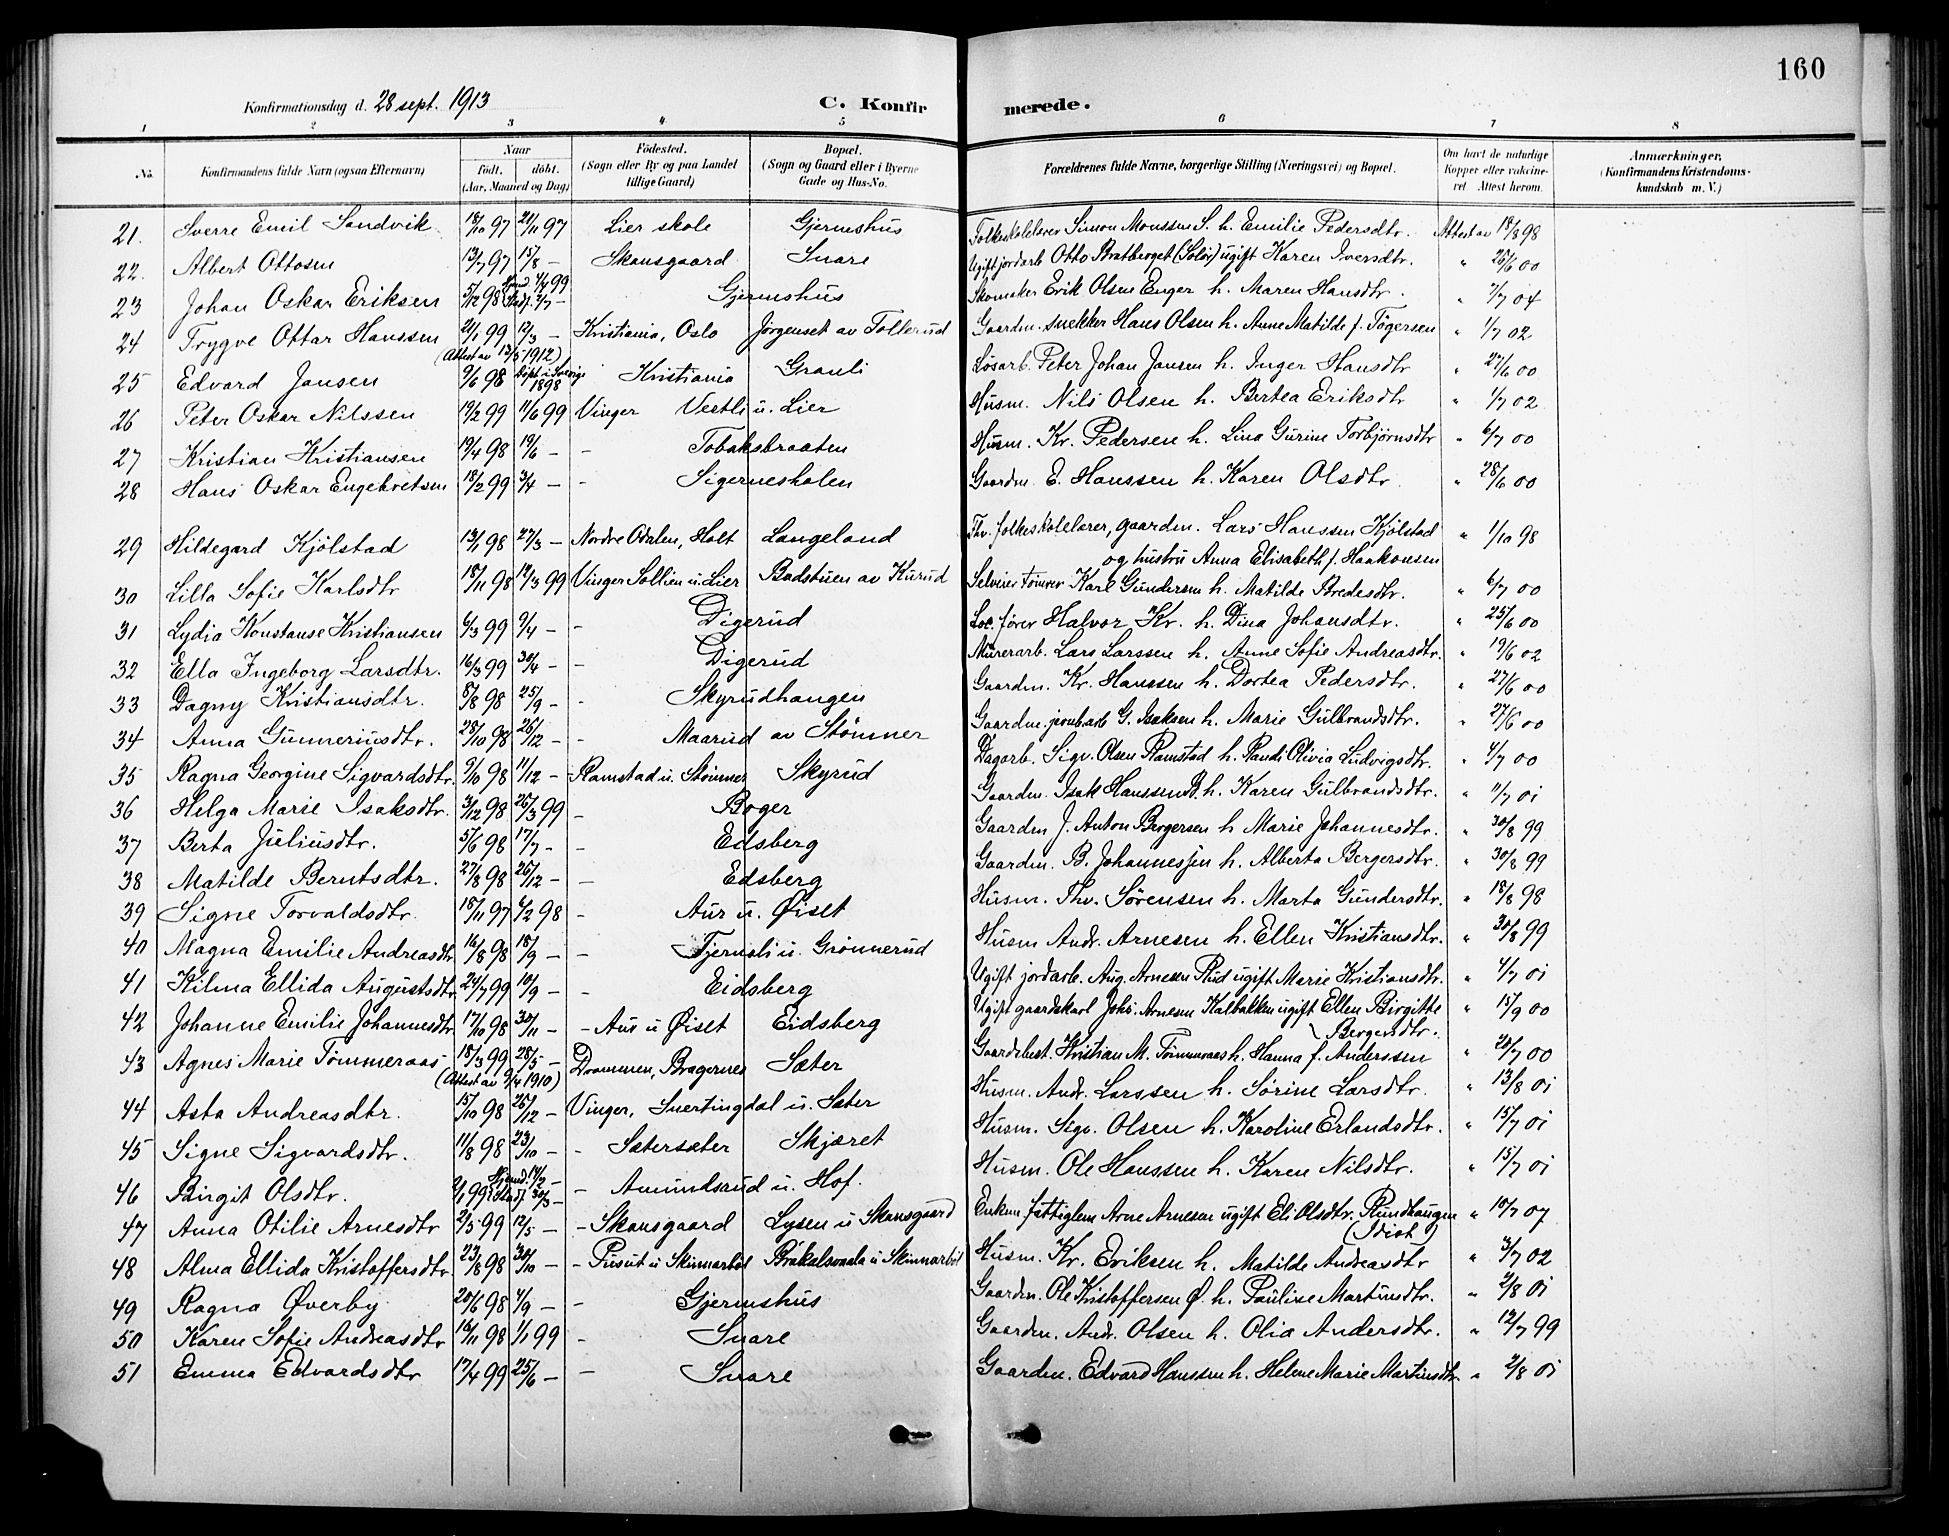 160
Konfirmationsdag d. 28 sept. 1913
C. Konfir merede.
1 2 3 4 5 6 7 8
No. Konfirmandens fulde Navn (ogsaa Efternavn) Naar født. døbt. (Aar, Maaned og Dag) Fødested. (Sogn eller By og paa Landet tillige Gaard) Bopæl. (Sogn og Gaard eller i Byerne Gade og Hus-No. Forældrenes fulde Navne, borgerlige Stilling (Næringsvei) og Bopæl. Om havt de naturlige Kopper eller vakcineret. Attest herom. Anmærkninger. (Konfirmandens Kristendomskundskab m. V.)
21. Sverre Emil Sandvik 18/10 97 21/11 97 Lier skole Gjermshus Folkeskolelærer Simon Monssen S. h. Emilie Pedersdtr. Attest av 18/8 98
22. Albert Ottosen 13/7 97 15/8 — Skansgaard Snare Ugift jordarb Otto Bratberget (Solør) ugift Karen Iversdtr. " 25/6 00
23 Johan Oskar Eriksen 5/12 98 Hjemd 4/4 99 Stadf. 2/7 — Gjermshus Skomaker Erik Olsen Enger h. Maren Hansdtr. " 7/7 04
24 Trygve Ottar Hanssen 21/1 99 12/3 — Kristiania, Oslo Jørgenset av Tollerud Gaardm. snekker Hans Olsen h. Anne Matilde f. Tøgersen " 1/7 02
(Attest av 13/5 1912)
25 Edvard Jansen 9/6 98 Døpt i Sverige 1898 Kristiania Granli Løsarb. Peter Johan Jansen h. Inger Hansdtr " 27/6 00
26 Peter Oskar Nilssen 19/2 99 11/6 99 Vinger Vestli u. Lier Husm. Nils Olsen h. Bertea Eriksdtr " 1/7 02
27 Kristian Kristiansen 19/4 98 19/6 — - Tobaksbraaten Husm. Kr. Pedersen h. Lina Gurine Torbjørnsdtr " 6/7 00
28 Hans Oskar Engebretsen 18/2 99 3/4 — - Sigernesholen Gaardm. E. Hanssen h. Karen Olsdtr " 28/6 00
29 Hildegard Kjølstad 13/1 98 27/3 — Nordre Odalen, Holt Langeland Fhv. folkeskolelærer, gaardm. Lars Hanssen Kjølstad " 1/10 98
og hustru Anna Elisabeth f. Haakonsen
30 Lilla Sofie Karlsdtr 18/11 98 12/3 99 Vinger Sollien u. Lier Badstuen av Kurud Selveier tømrer Karl Gundersen h. Matilde Bredesdtr. " 6/7 00
31 Lydia Konstanse Kristiansen 6/3 99 9/4 — - Digerud Loc. fører Halvor Kr. h. Dina Johansdtr. " 25/6 00
32 Ella Ingeborg Larsdtr. 16/3 99 30/4 — - Digerud Murerarb. Lars Larssen h. Anne Sofie Andreasdtr. " 19/6 02
33 Dagny Kristiansdtr. 8/8 98 25/9 — - Skyrudhaugen Gaardm. Kr. Hanssen h. Dortea Pedersdtr. " 27/6 00
34 Anna Gunneriusdtr. 28/10 98 26/12 — - Maarud av Stømner Gaardm. jernbarb G. Isaksen h. Marie Gulbrandsdtr. " 27/6 00
35 Ragna Georgine Sigvardsdtr. 9/10 98 11/12 — - Ramstad u. Stømner Skyrud Dagarb. Sigv. Olsen Ramstad h. Randi Olivia Ludvigsdtr. " 4/7 00
36 Helga Marie Isaksdtr. 3/12 98 26/3 99 - Boger Gaardm. Isak Hanssen B. h. Karen Gulbrandsdtr. " 11/7 01
37 Berta Juliusdtr. 5/6 98 17/7 — - Edsberg Gaardm J. Anton Bergersen h Marie Johannesdtr. " 30/8 99
38 Matilde Berntsdtr. 27/8 98 26/12 — - Edsberg Gaardm. B. Johannessen h. Alberta Bergersdtr. " 30/8 99
39 Signe Torvaldsdtr. 18/11 97 6/2 98 - Aur u. Øiset Husm. Thv. Sørensen h. Marta Gundersdtr. " 18/8 98
40 Magna Emilie Andreasdtr 16/8 98 18/9 — - Tjernsli u. Grønnerud Husm Andr. Arnesen h. Ellen Kristiansdtr. " 30/8 99
41 Kilma Ellida Augustsdtr. 24/7 99 10/9 — - Eidsberg Ugift jordarb. Aug. Arnesen Rud ugift Marie Kristiansdtr. " 4/7 01
42 Johanne Emilie Johannesdtr 17/10 98 30/11 — - Aur u Øiset Eidsberg Ugift gaardskarl Johs. Arnesen Kalbakken ugift Ellen Birgitte " 15/9 00
Bergersdtr.
43 Agnes Marie Tømmeraas 18/3 99 28/5 — Drammen, Bragernes Sæter Gaardsbest. Kristian M. Tømmeraas h. Hanna f. Anderssen " 20/7 00
(Attest av 9/4 1910)
44 Asta Andreasdtr. 15/10 98 26/12 — Vinger, Snertingdal u. Sæter Husm. Andr. Larssen h. Sørine Larsdtr. " 13/8 01
45 Signe Sigvardsdtr. 11/8 98 23/10 — - Sætersæter Skjæret Husm. Sigv. Olsen h. Karoline Erlandsdtr. " 15/7 01
46 Birgit Olsdtr. 2/1 99 Hjemd. 14/2 — Stadf. 30/3 — - Amundsrud u. Hof. Husm. Ole Hanssen h. Karen Nilsdtr. " 15/7 01
47 Anna Otilie Arnesdtr 2/5 99 12/5 — - Skansgaard Lysen u Skansgaard Enkem. fattiglem Arne Arnesen ugift Eli Olsdtr. Rundhaugen " 10/7 07
(Idiot)
48 Alma Ellida Kristoffersdtr. 23/8 98 30/10 — - Pusut u Skinnarbøl Brøkalsmala u Skinnarbøl Husm. Kr. Eriksen h. Matilde Andreasdtr " 3/7 02
49 Ragna Øverby 20/6 98 4/9 — - Gjermshus Gaardm. Ole Kristoffersen Ø. h. Pauline Martinsdtr. " 2/8 01
50 Karen Sofie Andreasdtr 16/11 98 1/1 99 - Snare Gaardm. Andr. Olsen h. Olia Andersdtr. " 12/7 99
51 Emma Edvardsdtr 17/4 99 25/6 — - Snare Gaardm. Edvard Hanssen h. Helene Marie Martinsdtr. " 2/8 01